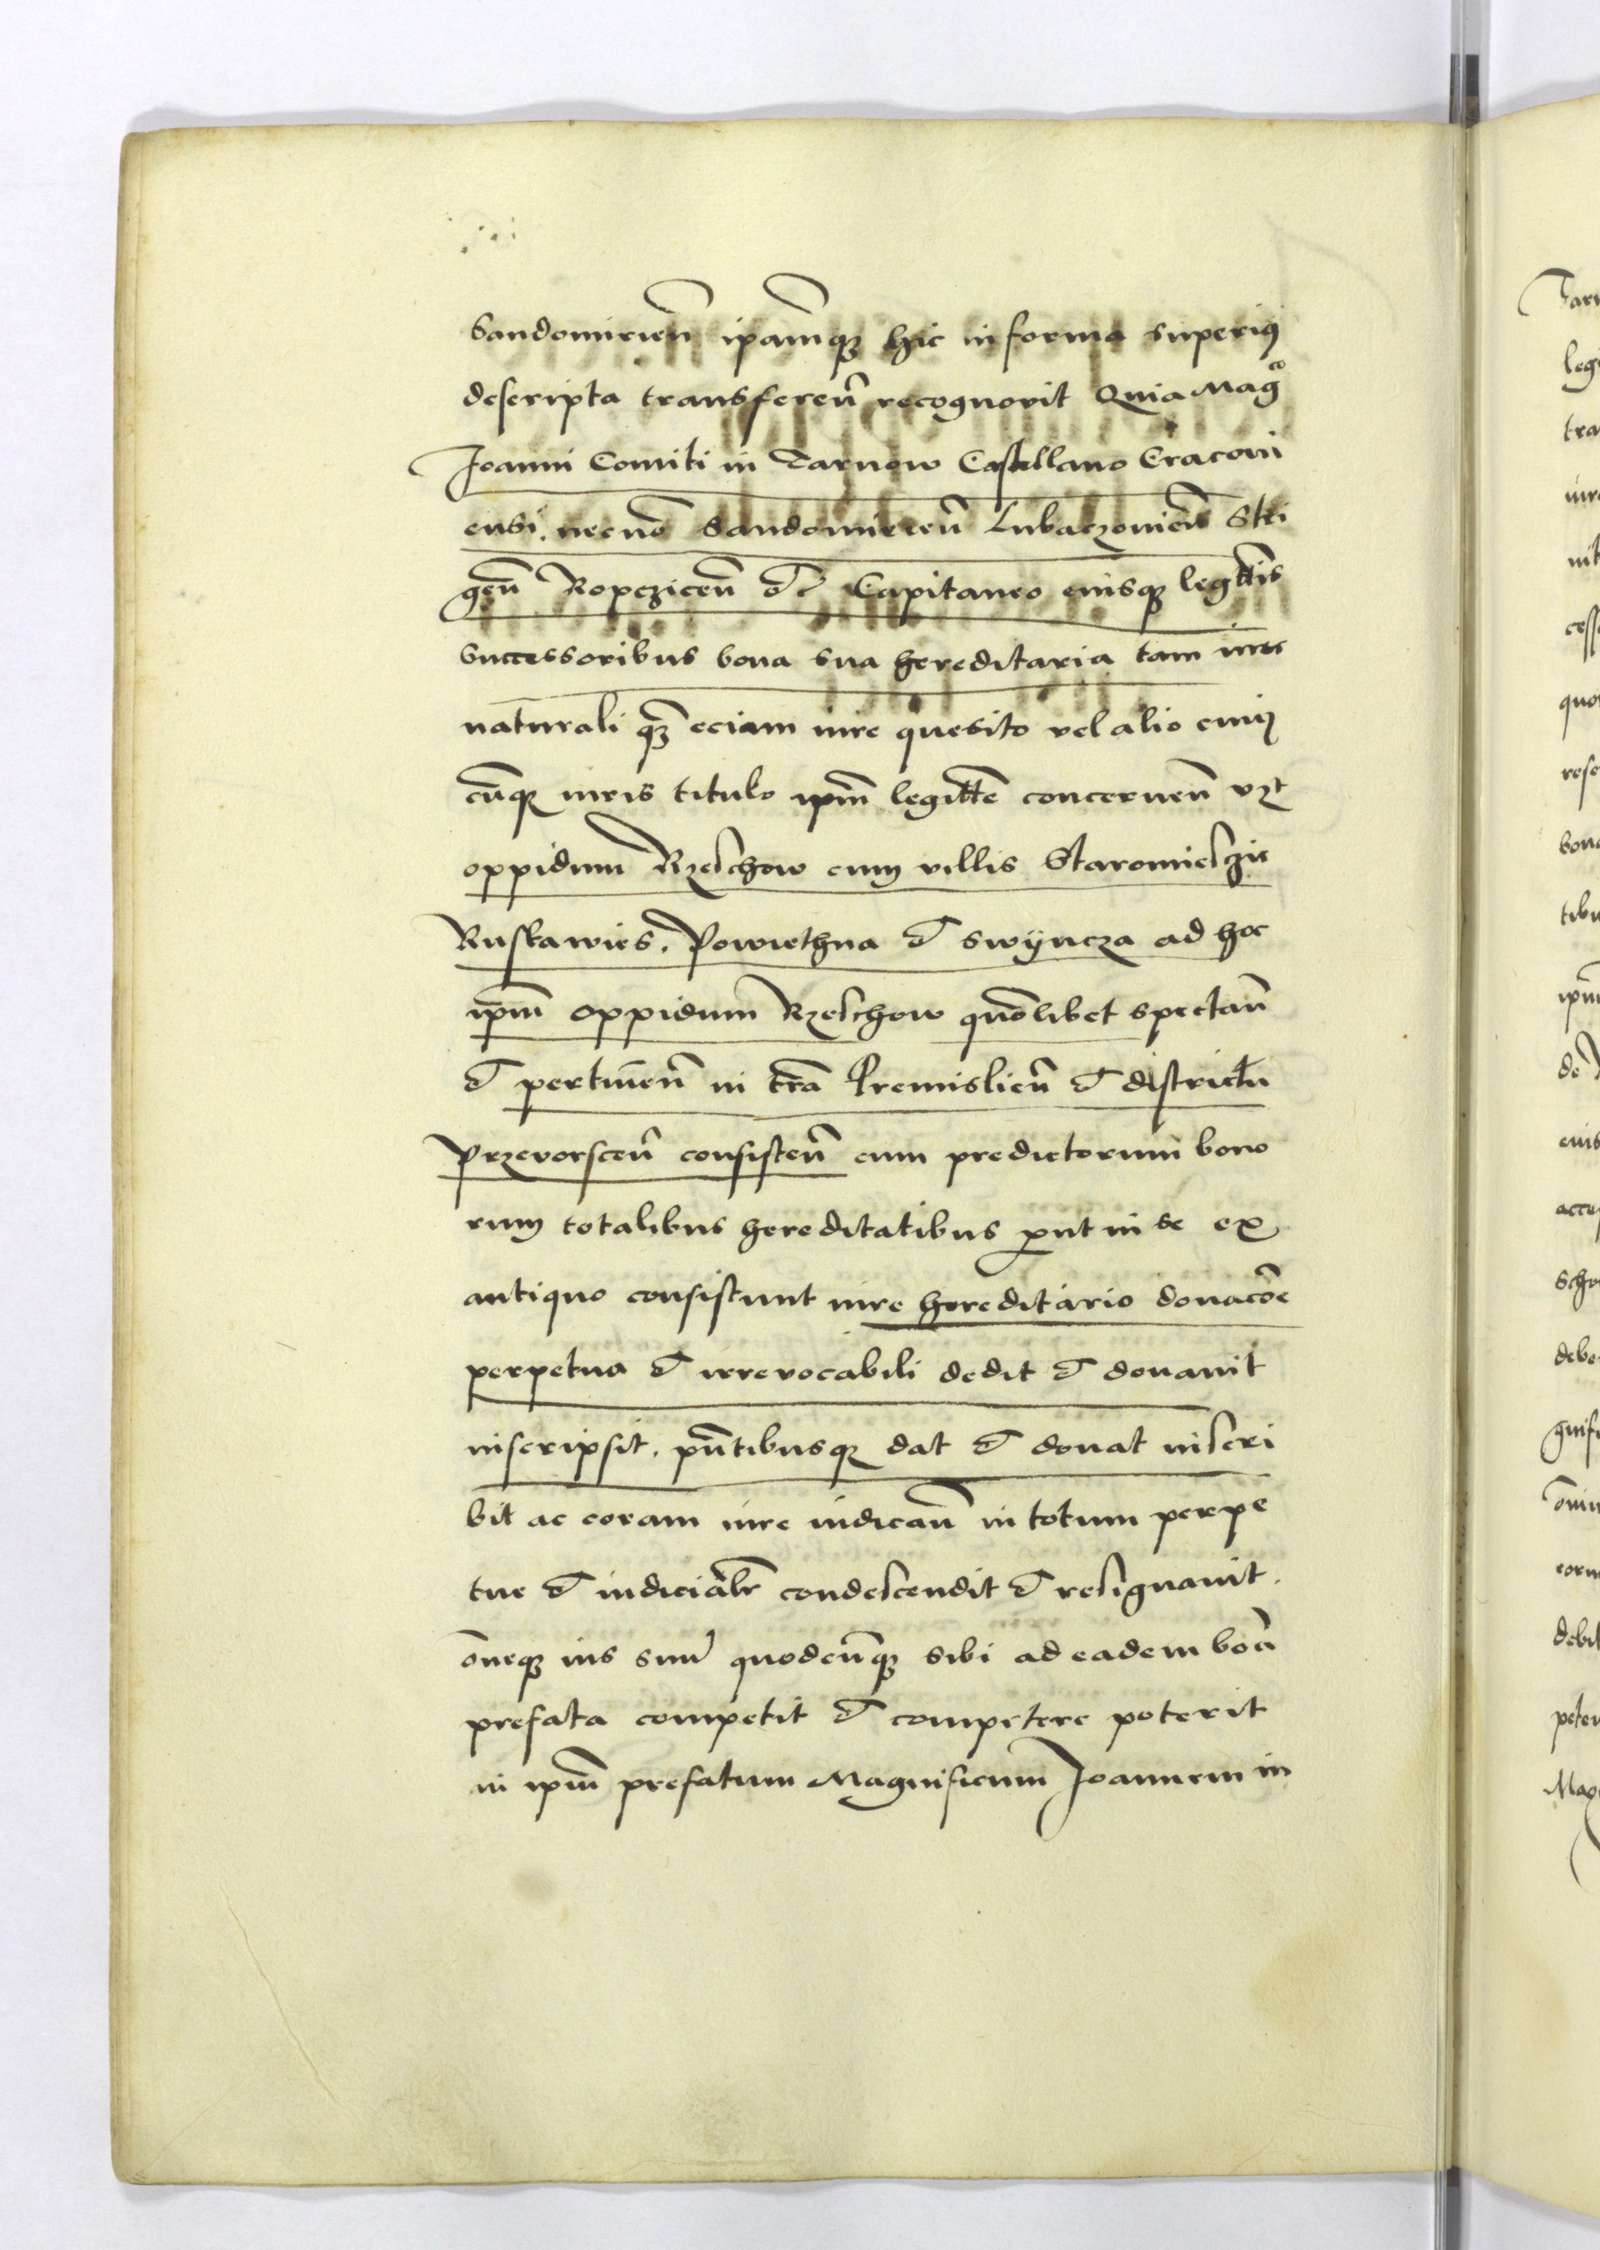 Sandomirien̄ ip̄amq3 hic in forma superi9
descripta transferen̄ recognovit Quia Mag͡co
Joanni Comiti in Tarnow Castellano Cracovi
ensi. necno͞ Sandomirien̄ Lubaczovien̄ Stri
gen̄ Ropczicen̄ et͞c Capitaneo eiusq3 legittīs
Successoribus bona sua hereditaria tam iure
naturali q3͞ eciam iure quesito vel alio cui9
cu͞q3 iuris titulo ip̄m legitt͞e concernen̄ vzt
oppidum Rzeschow cum villis Staromieszcie
Ruskawies. Powiethna et Swÿncza ad hoc
ip̄m oppidum Rzeschow quo͞libet spectan̄
et pertinen̄ in t͞ra Premislien̄ et districtu
Przevorscen̄ consisten̄ cum predictorum bono
rum totalibus hereditatibus ꝓut in se ex
antiquo consistunt iure hereditario donaco͞e
perpetua et irrevocabili dedit et donavit
inscripsit. pn̄tibusq3 dat et donat inscri
bit ac coram iure iudican̄ in totum perpe
tue et iudicial͞r condescendit et resignavit.
o͞neq3 ius suu͞ quodcu͞q3 sibi ad eadem bo͞a
prefata competit et competere poterit
in ip̄m prefatum Magnificum Joannem in